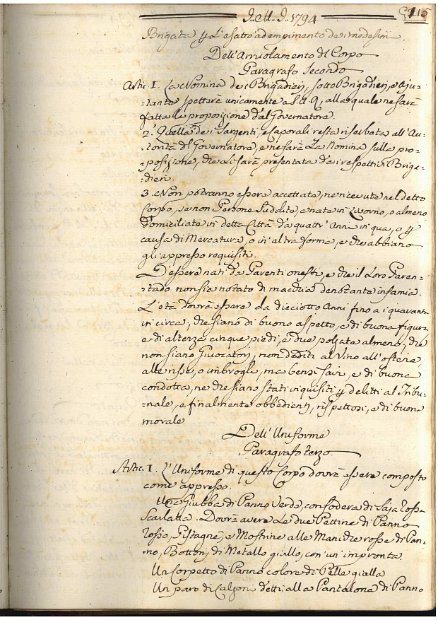 J. M. J. 1794
115
Brigata p. l'esatto adempimento dei medesimi
Dell'Arrolamento di Corpo
Paragrafo Secondo
Artic. 1. La Nomina dei Brigadieri, sotto Brigadieri, e Aju-
tante spetterà unicamente a S.A.R., alla quale ne sarà
fatta la proposizione dal Governatore.
2. Quella dei Sargenti, e Caporali resta riservata all'Au-
torità del Governatore, e ne farà la Nomina sulla pro-
posizione, che li sarà presentata dai respettivi Briga-
dieri.
3. Non potranno essere accettati, ne ricevuti nel detto
Corpo, se non Persone Suddite, e nate in Livorno, o almeno
domiciliate in detta Città da quattr' Anni in qua, o p.
causa di Mercatura, o in altra forma, e che abbiano
gli appresso requisiti.
D'essere nati da Parenti onesti, e che il Loro Paren-
tado non sia notato di macchia d'infamia.
L'età dovrà essere da dieciotto Anni fino a i quaranta
in circa, che siano di buono aspetto, e di buona figura
e di altezza cinque piedi, e due pollici almeno, che
non siano Giuocatori, non dediti al Vino all'osterie
alle risse, o imbrogli, ma bensì savi, e di buona
condotta, ne che siano stati inquisiti p. delitti al Tribu-
nale, e finalmente obbedienti, rispettosi, e di buona
morale
Dell'Uniforme
Paragrafo terzo
Artic. 1. L'Uniforme di questo Corpo dovrà essere composto
come appresso.
Una Giubba di Panno Verde, con fodera di Saja rossa
Scarlatta. Dovrà avere le due Pettine di Panno
rosso, e Mostrine alle Manichе rosse di Pan-
no, Bottoni di Metallo giallo, con un' impronta
Un Corpetto di Panno colore di Pelle gialla
Un paro di Calzoni d'etti alla Pantalona di Panno